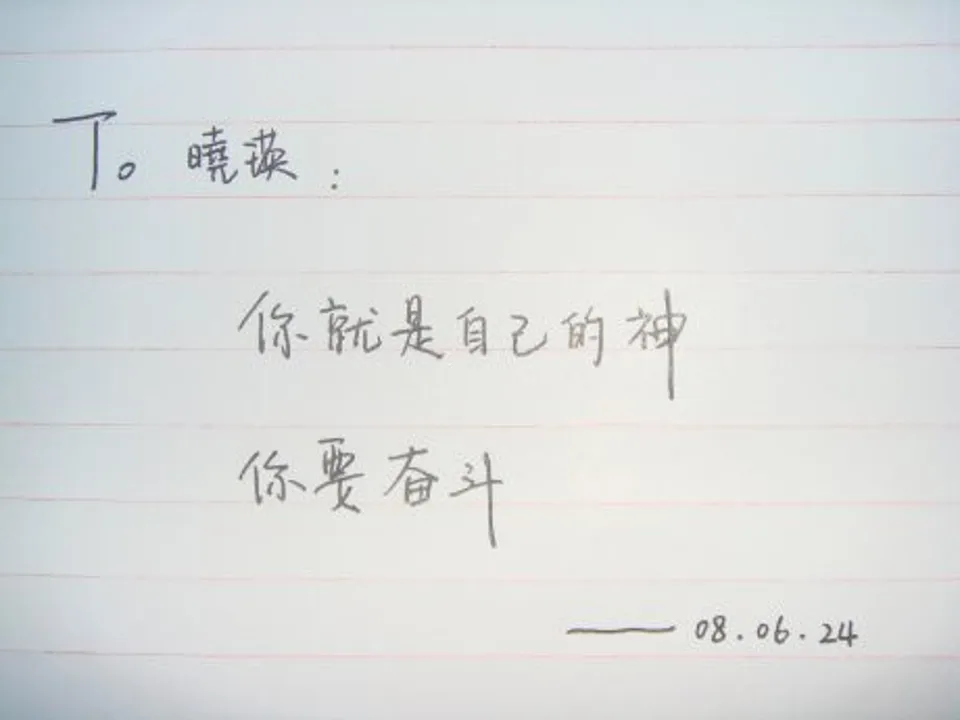 To 曉瑛：
你就是自己的神
你要奋斗
——08.06.24